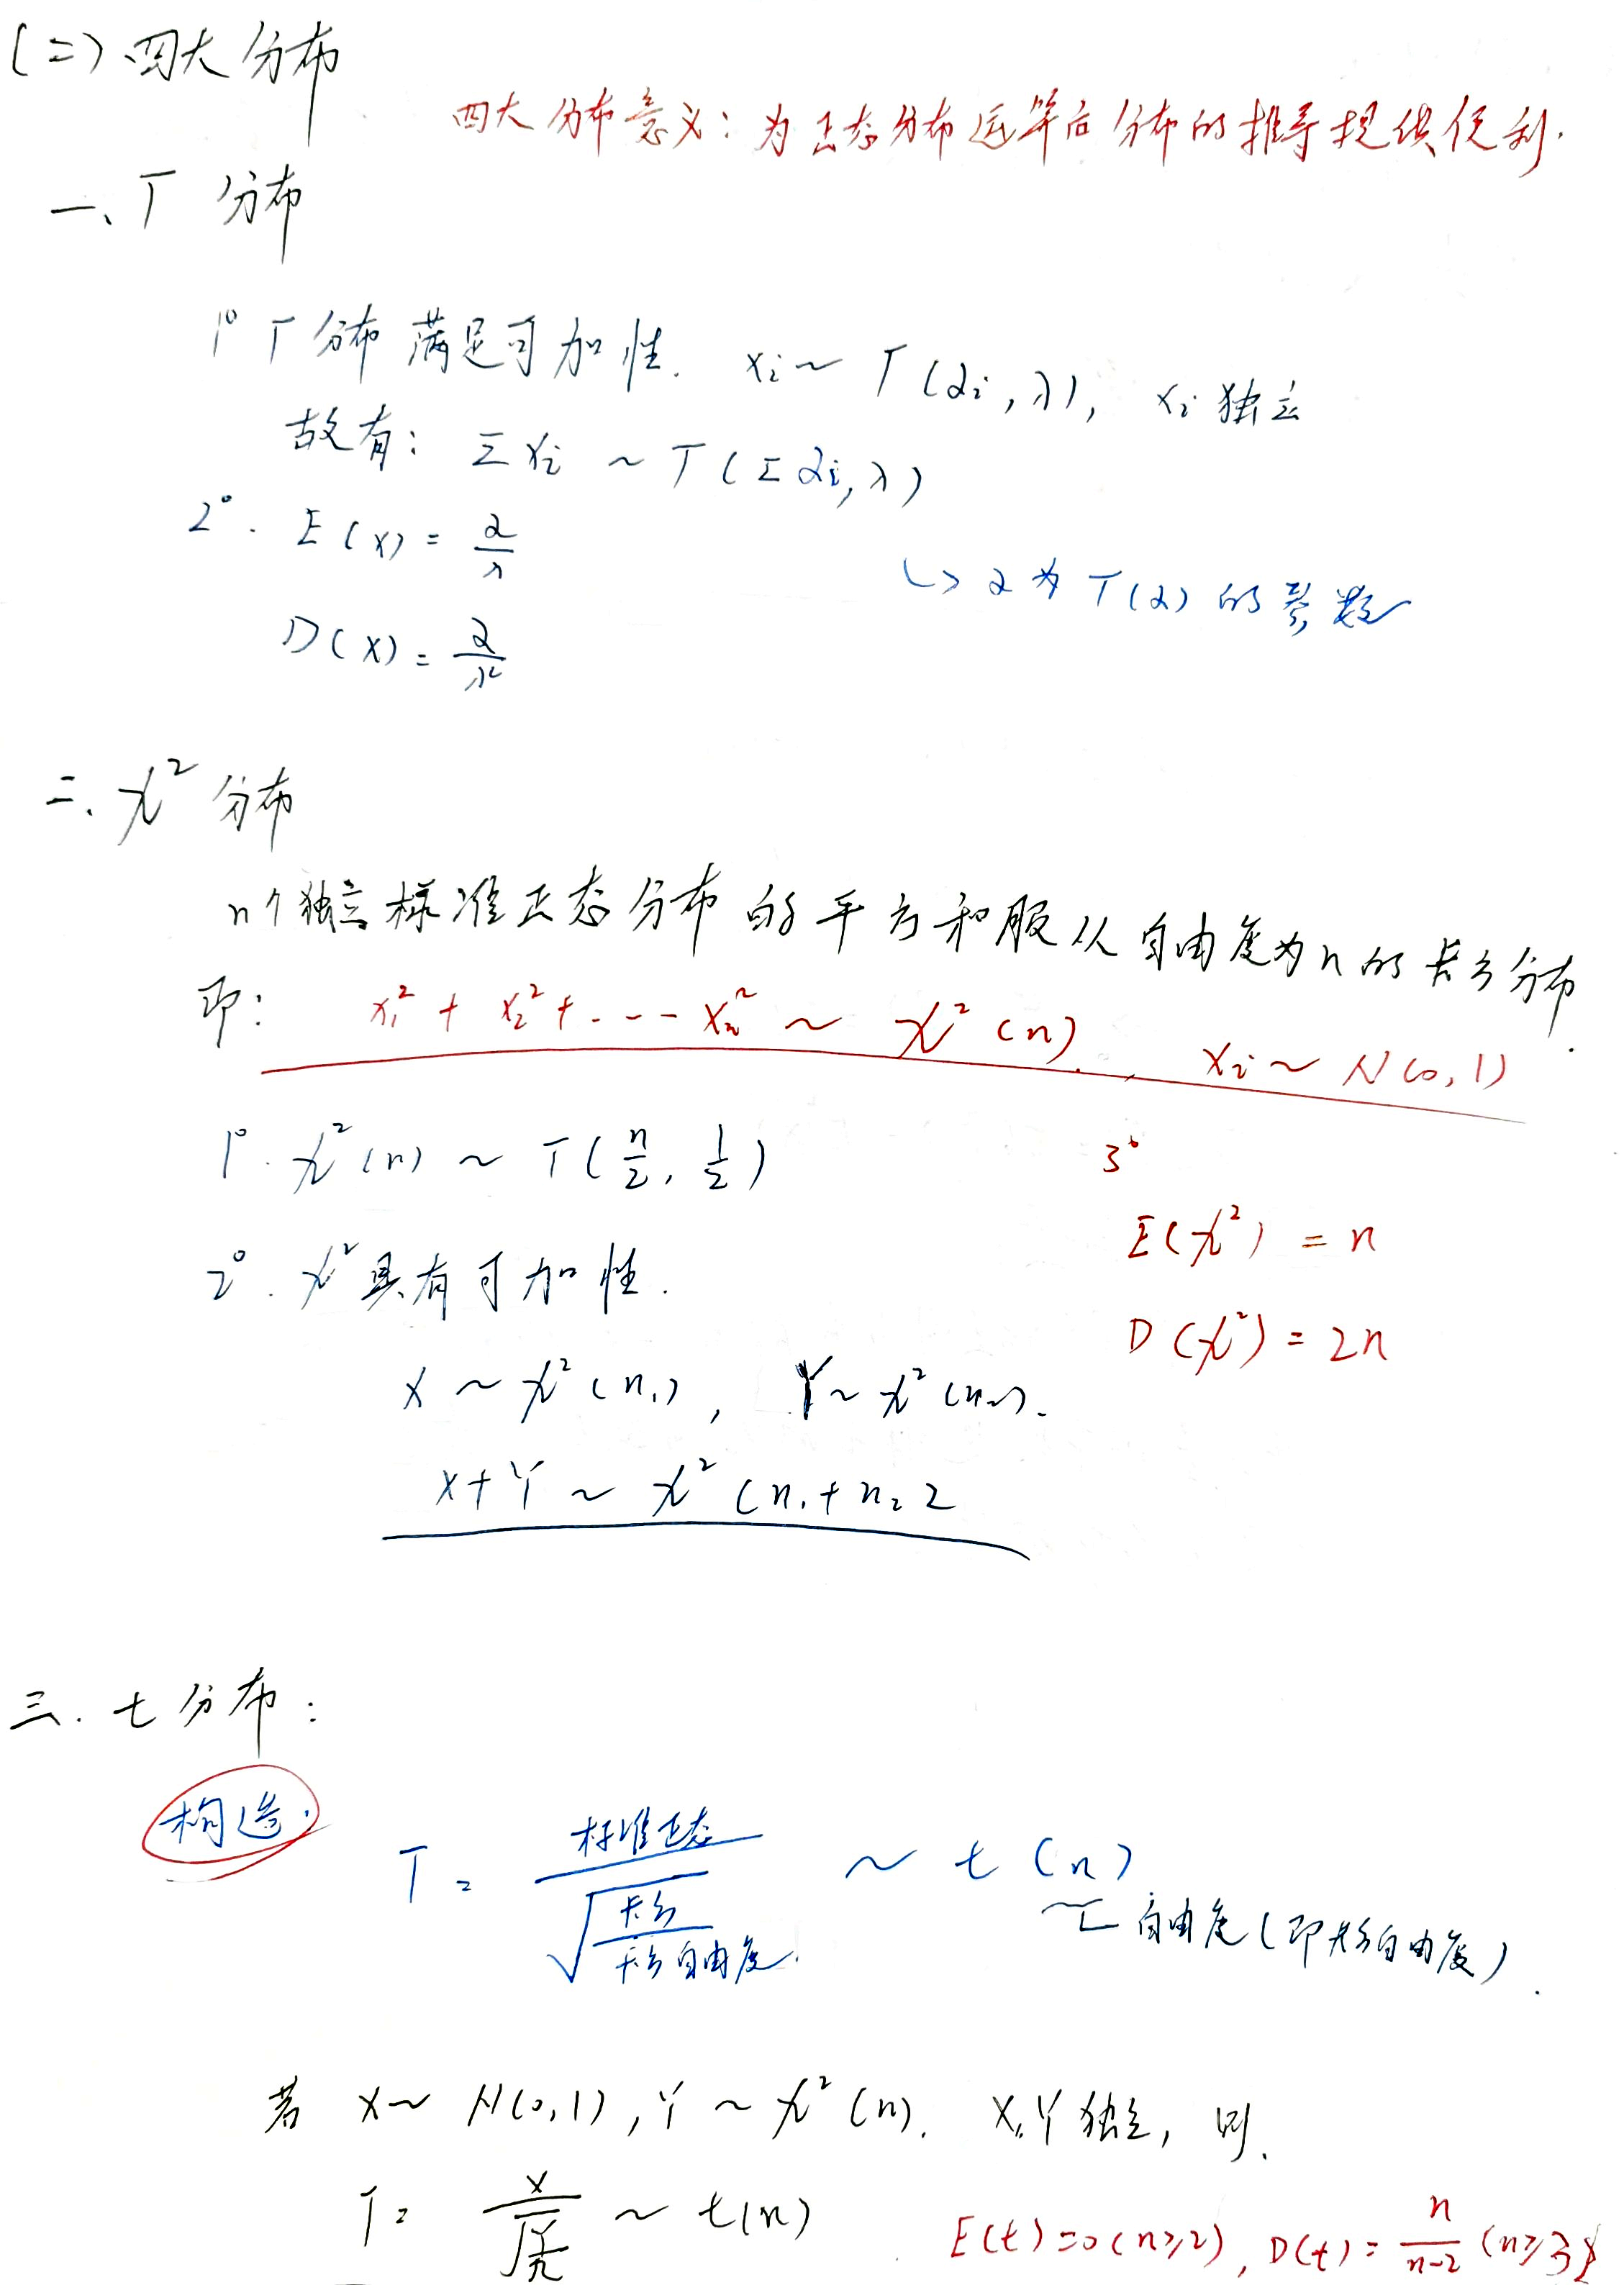 (二) 四大分布
四大分布意义：为正态分布运算后分布的推导提供便利.
一、Γ 分布
1° Γ分布满足可加性. Xi ~ Γ(αi, λ), Xi 独立
故有: Σ Xi ~ Γ(Σ αi, λ)
2°. E(X) = α/λ
↳ α为Γ(α)的参数
D(X) = α/λ²
二. χ² 分布
n个独立标准正态分布的平方和服从自由度为n的卡方分布.
即: X₁² + X₂² + ---- Xn² ~ χ²(n). Xi ~ N(0,1)
1°. χ²(n) ~ Γ(n/2, 1/2)
3°
E(χ²) = n
2°. χ²具有可加性.
D(χ²) = 2n
X ~ χ²(n₁), Y ~ χ²(n₂).
X+Y ~ χ²(n₁+n₂)
三. t分布:
构造.
T = 标准正态/√(卡方/卡方自由度) ~ t(n)
自由度(即卡方自由度).
若 X ~ N(0,1), Y ~ χ²(n). X,Y独立, 则.
T = X/√(Y/n) ~ t(n)
E(t)=0(n≥2), D(t)= n/(n-2) (n≥3)